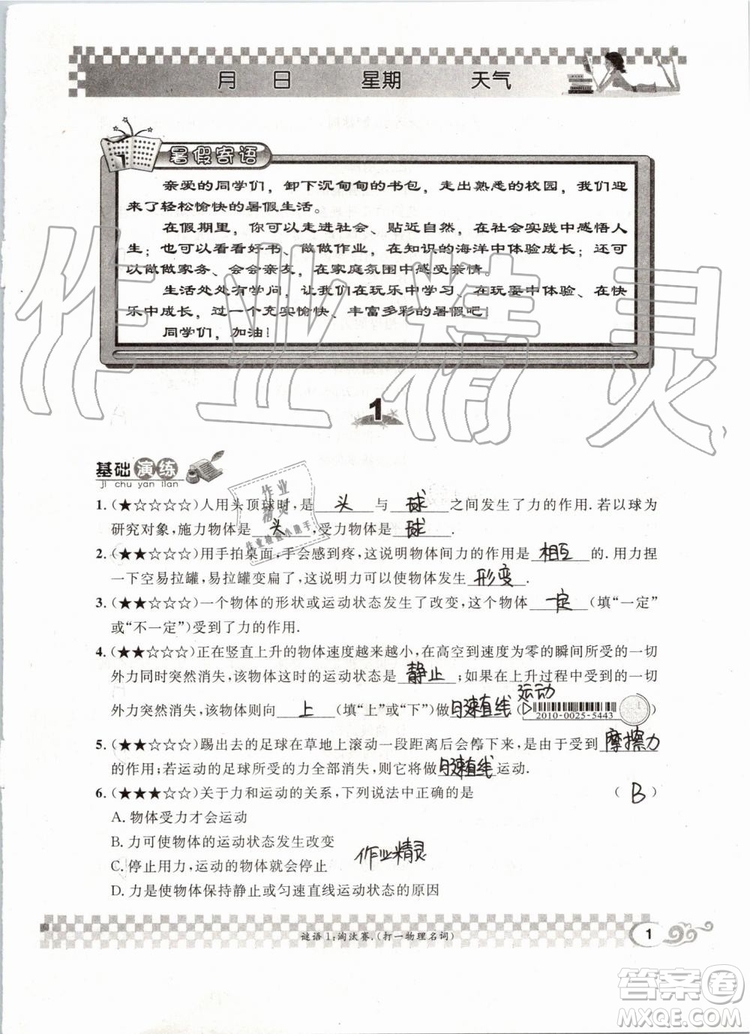 月 日 星期 天气
暑假寄语
亲爱的同学们，卸下沉甸甸的书包，走出熟悉的校园，我们将迎
来了轻松愉快的暑假生活。
在假期里，你可以走进社会、贴近自然，在社会实践中感悟人
生；也可以看看好书、做做作业，在知识的海洋中体验成长；还可
以做做家务、会会亲友，在家庭氛围中感受亲情。
生活处处有学问，让我们在玩乐中学习、在玩耍中体验、在快
乐中成长，过一个充实愉快、丰富多彩的暑假吧！
同学们，加油！
1
基础演练
ji chu yan lian
1.（★☆☆☆☆）人用头顶球时，是 头 与 球 之间发生了力的作用．若以球为
研究对象，施力物体是 头 ，受力物体是 球 ．
2.（★★☆☆☆）用手拍桌面，手会感到疼，这说明物体间力的作用是 相互 的．用力捏
一下空易拉罐，易拉罐变扁了，这说明力可以使物体发生 形变 ．
3.（★★☆☆☆）一个物体的形状或运动状态发生了改变，这个物体 一定 （填“一定”
或“不一定”）受到了力的作用．
4.（★★☆☆☆）正在竖直上升的物体速度越来越小，在高空到速度为零的瞬间所受的一切
外力同时突然消失，该物体这时的运动状态为 静止 ；如果在上升过程中所受的一切
外力突然消失，该物体则向 上 （填“上”或“下”）做 匀速直线运动
2010-0025-5443
5.（★★☆☆☆）踢出去的足球在草地上滚动一段距离后会停下来，是由于受到 摩擦力
的作用．若运动的足球所受的力全部消失，则它将做 匀速直线 运动．
6.（★★★☆☆）关于力和运动的关系，下列说法中正确的是 （ B ）
A. 物体受力才会运动
B. 力可使物体的运动状态发生改变
C. 停止用力，运动的物体就会停止
作业精灵
D. 力是使物体保持静止或匀速直线运动状态的原因
谜语1：淘汰赛．（打一物理名词）
1
作业精灵
答案圈
MXQE.COM